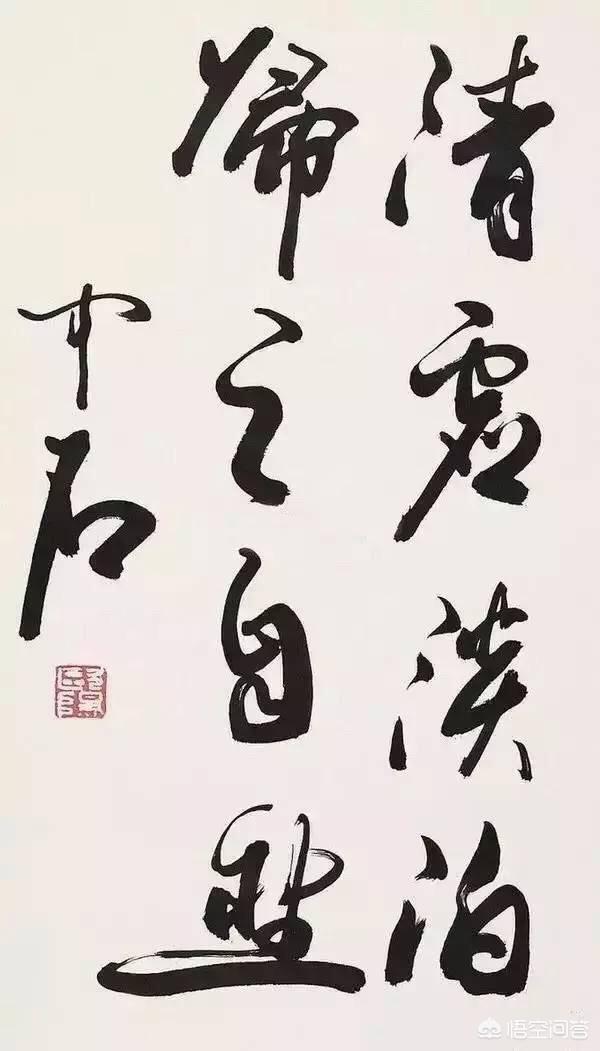 清虚淡泊
歸之自然
中石
悟空问答